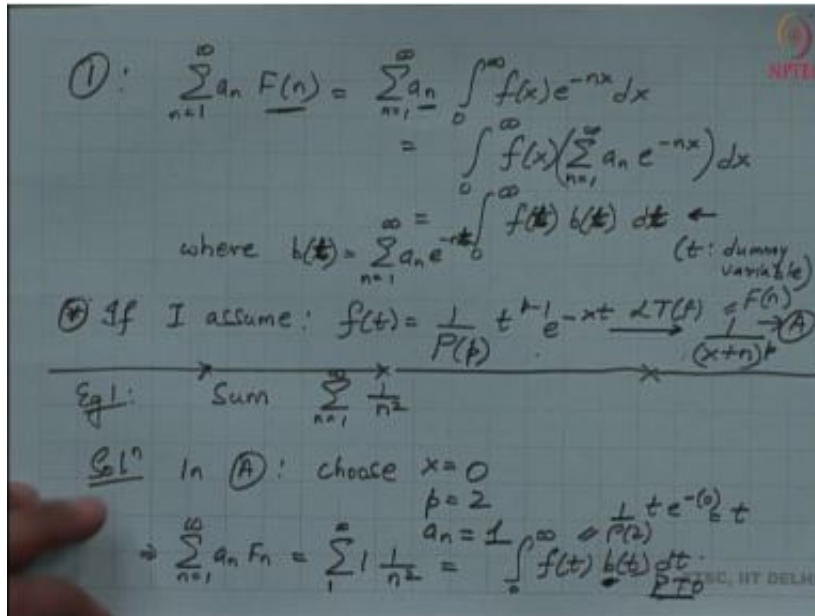 NPTEL
①: ∑_{n=1}^{∞} a_n F(n) = ∑_{n=1}^{∞} a_n ∫_0^∞ f(x) e^{-nx} dx
= ∫_0^∞ f(x) (∑_{n=1}^{∞} a_n e^{-nx}) dx
= ∫_0^∞ f(t) b(t) dt ←
where b(t) = ∑_{n=1}^{∞} a_n e^{-nt}
(t: dummy variable)
(*) If I assume: f(t) = 1/Γ(p) t^{p-1} e^{-xt} → LT(f) = F(n) 1/(x+n)^p → Ⓐ
Eg 1: Sum ∑_{n=1}^{∞} 1/n²
Solⁿ In Ⓐ: choose x = 0
p = 2
a_n = 1
1/Γ(2) t e^{-(0)t}
⇒ ∑_{n=1}^{∞} a_n F_n = ∑_1^∞ 1 1/n² = ∫_0^∞ f(t) b(t) dt
PTO
IIT DELHI